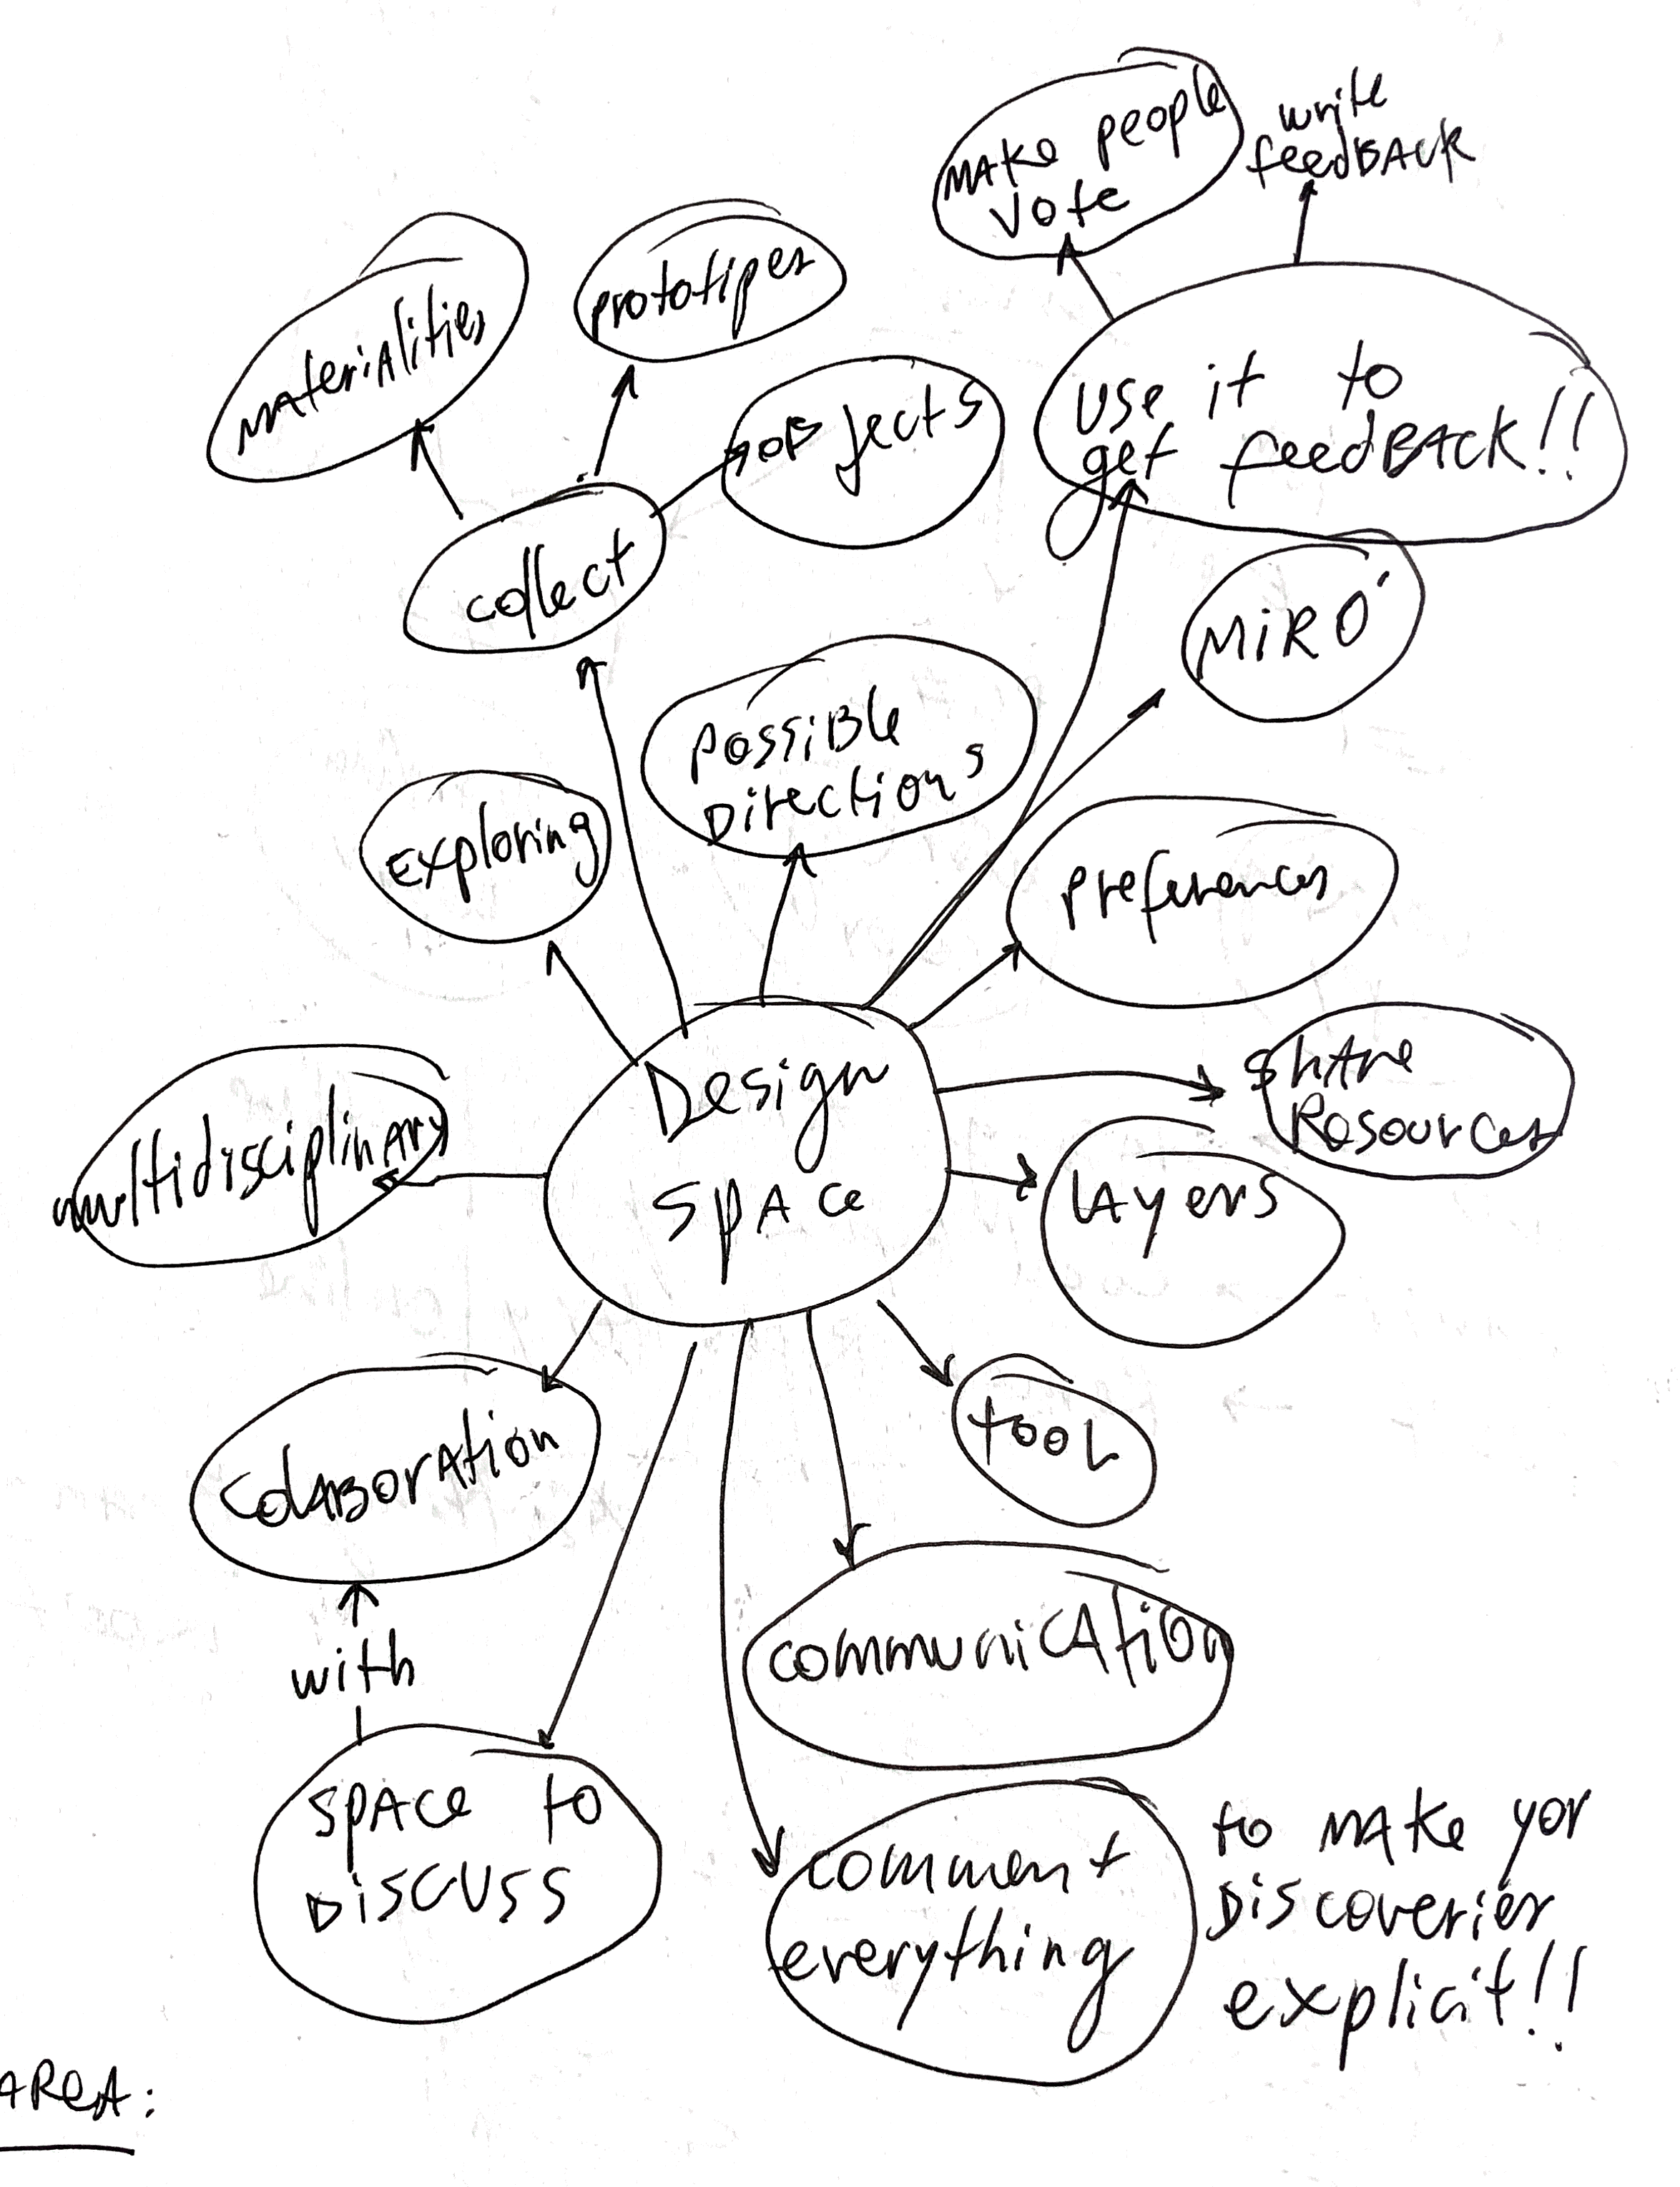 MAKE people
vote
write
feedBACK
prototipes
materiAlities
OBjects
use it to
get feedBACK!!
collect
MiRO
possiBle
Directions
Exploring
preferences
Design
spAce
shAre
Resources
multidisciplinAry
LAyers
tooL
colABorAtion
communicAtion
with
spAce to
Discuss
comment
everything
to MAke yor
Discoveries
explicit!!
AReA: